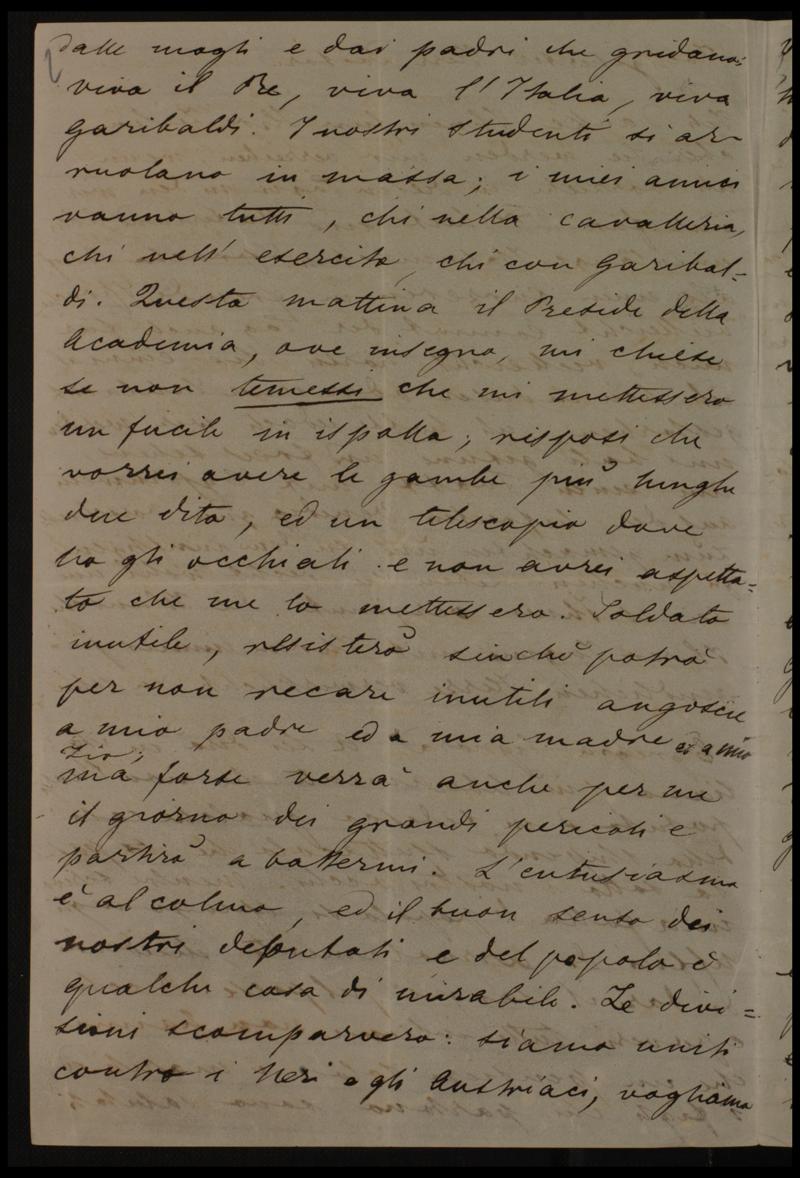 2
dalle mogli e dai padri che gridano:
viva il Re, viva l'Italia, viva
Garibaldi. I nostri studenti si ar-
ruolano in massa; i miei amici
vanno tutti, chi nella cavalleria,
chi nell' esercito, chi con Garibal=
di. Questa mattina il Preside della
Academia, ove insegno, mi chiese
se non temessi che mi mettessero
un fucile in ispalla; risposi che
vorrei avere le gambe più lunghe
due dita, ed un telescopio dove
ho gli occhiali e non avrei aspetta=
to che me lo mettessero. Soldato
inutile, resisterò sinchè potrò
per non recare inutili angoscie
a mio padre ed a mia madre ed a mio
zio;
ma forse verrà anche per me
il giorno dei grandi pericoli e
partirò a battermi. L'entusiasmo
è al colmo, ed il buon senso dei
nostri deputati e del popolo è
qualche cosa di mirabile. Le divi=
sioni scomparvero: siamo uniti
contro i Neri e gli Austriaci, vogliamo